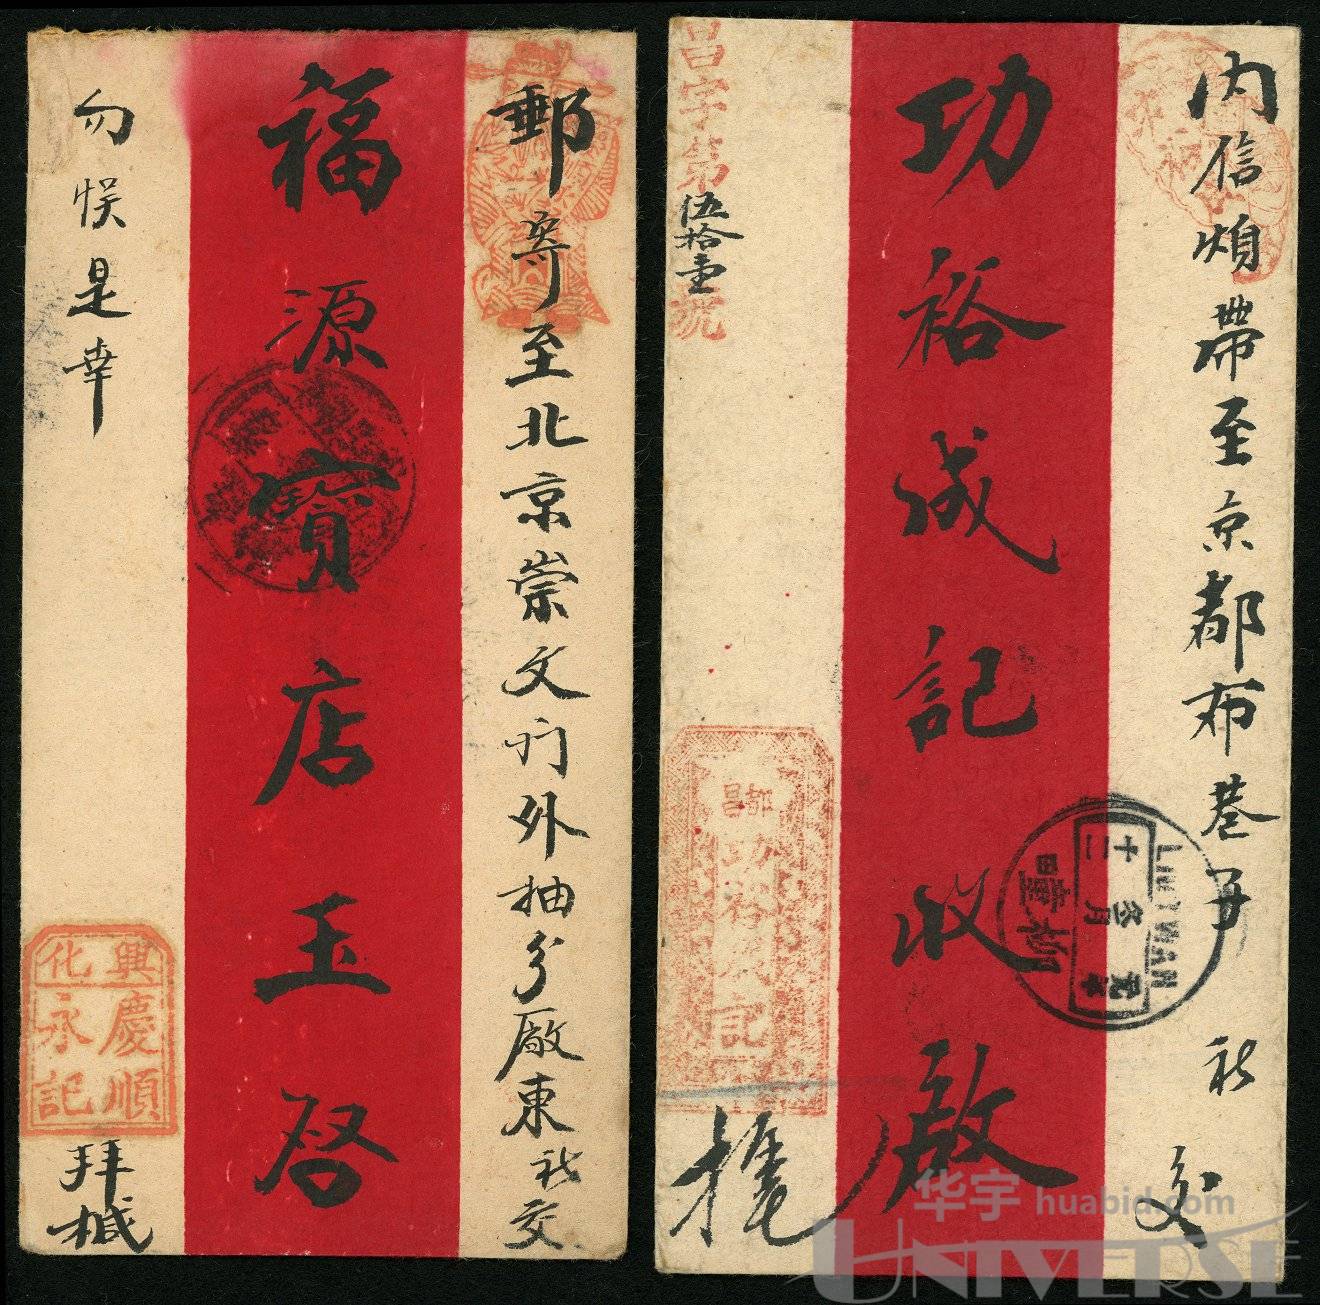 郵寄至北京崇文门外抽分厰東
交
福源寶店玉啓
勿悮是幸
興慶順
化永記
拜椷
内信煩帶至京都布巷子
交
功裕成記收啟
昌字第伍拾壹號
都昌
功裕成記
LIUTWAN
十二
叁月
疃柳
华宇 huabid.com
UNIVERSE